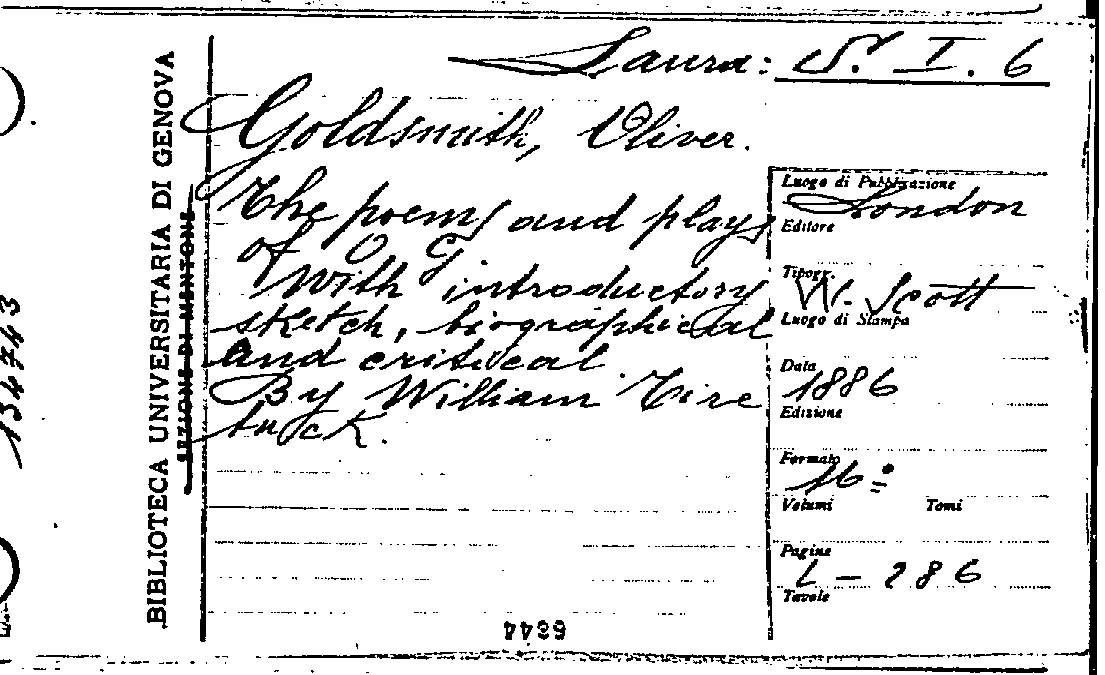 Laura: S. I. 6
Goldsmith, Oliver.
The poems and plays
of O G
With introductory
sketch, biographical
and critical.
By William Tire
buck.
Luogo di Pubblicazione
London
Editore
Tipogr.
W. Scott
Luogo di Stampa
Data
1886
Edizione
Formato
16º
Volumi Tomi
Pagine
L - 286
Tavole
BIBLIOTECA UNIVERSITARIA DI GENOVA
SEZIONE DI MENTONE
134743